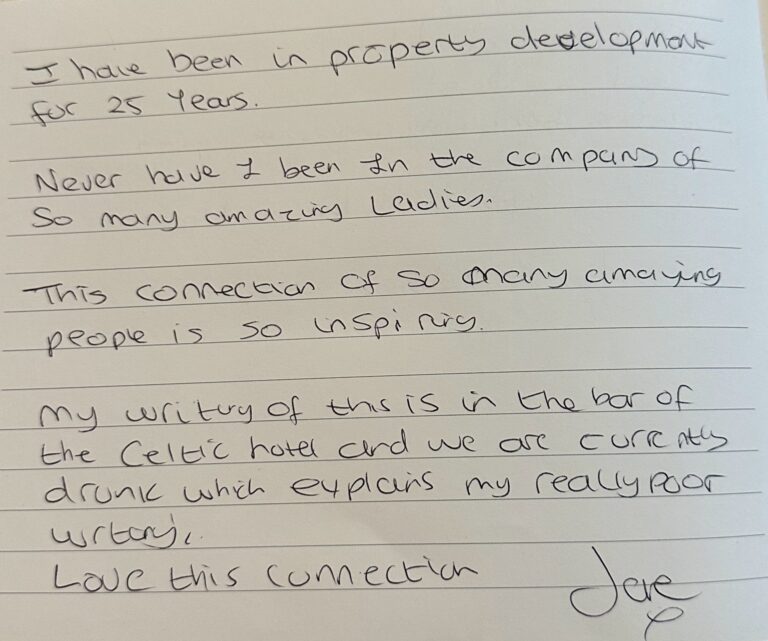 I have been in property development
for 25 Years.
Never have I been In the company of
So many amazing Ladies.
This connection of so many amazing
people is so inspiring.
My writing of this is in the bar of
the Celtic hotel and we are currently
drunk which explains my really poor
writing.
Love this connection